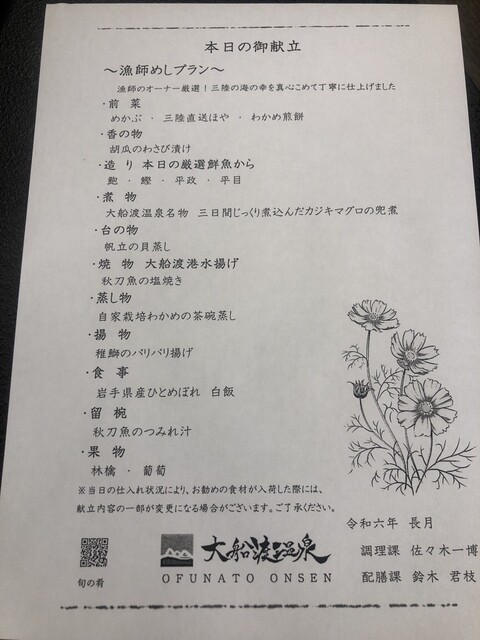 本日の御献立
～漁師めしプラン～
漁師のオーナー厳選！三陸の海の幸を真心こめて丁寧に仕上げました
・前 菜
めかぶ ・ 三陸直送ほや ・ わかめ煎餅
・香の物
胡瓜のわさび漬け
・造 り 本日の厳選鮮魚から
鮑 ・ 鰹 ・ 平政 ・ 平目
・煮 物
大船渡温泉名物 三日間じっくり煮込んだカジキマグロの兜煮
・台の物
帆立の貝蒸し
・焼 物 大船渡港水揚げ
秋刀魚の塩焼き
・蒸し物
自家栽培わかめの茶碗蒸し
・揚 物
稚鰤のバリバリ揚げ
・食 事
岩手県産ひとめぼれ 白飯
・留 椀
秋刀魚のつみれ汁
・果 物
林檎 ・ 葡萄
※当日の仕入れ状況により、お勧めの食材が入荷した際には、
献立内容の一部が変更になる場合がございます。ご了承ください。
令和六年 長月
調理課 佐々木一博
配膳課 鈴木 君枝
旬の肴
大船渡温泉
OFUNATO ONSEN